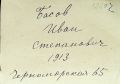 Басов
Иван
степанович
1913
Черноморская 65